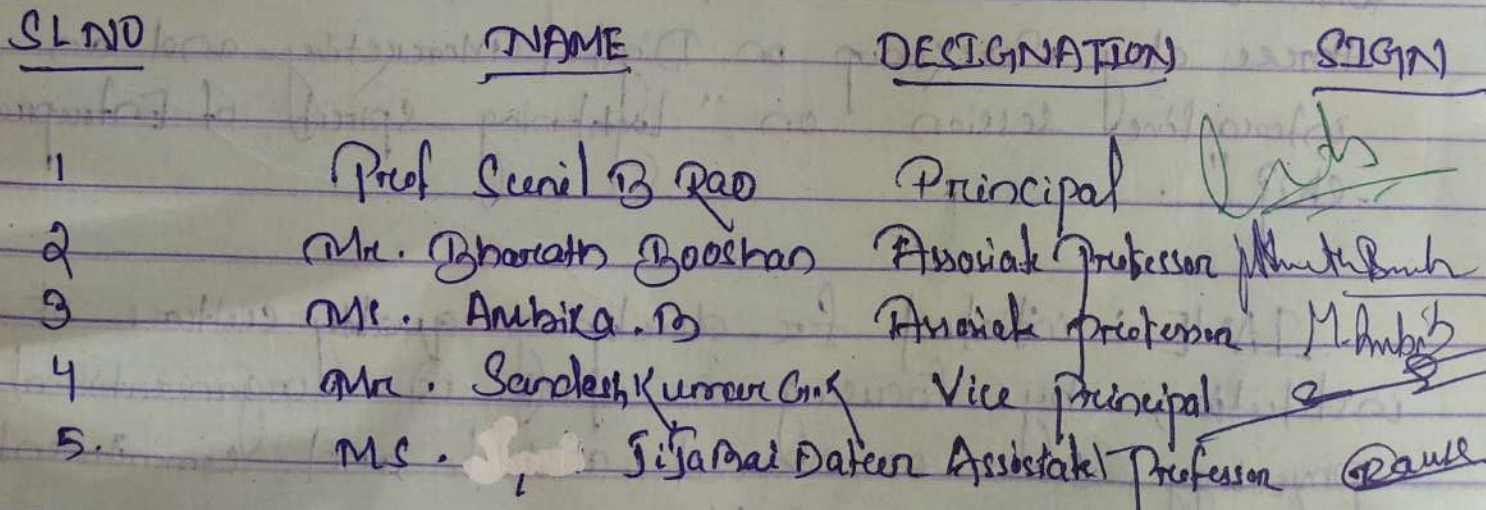 SL NO NAME DESIGNATION SIGN
1 Prof Sunil B Rao Principal
2 Mr. Bharath Booshan Associate Professor
3 Ms. Ambika.B Associate Professor M.Ambi
4 Mr. Sandesh Kumar G.K Vice Principal
5. Ms. Jijabai Assistatel Professor